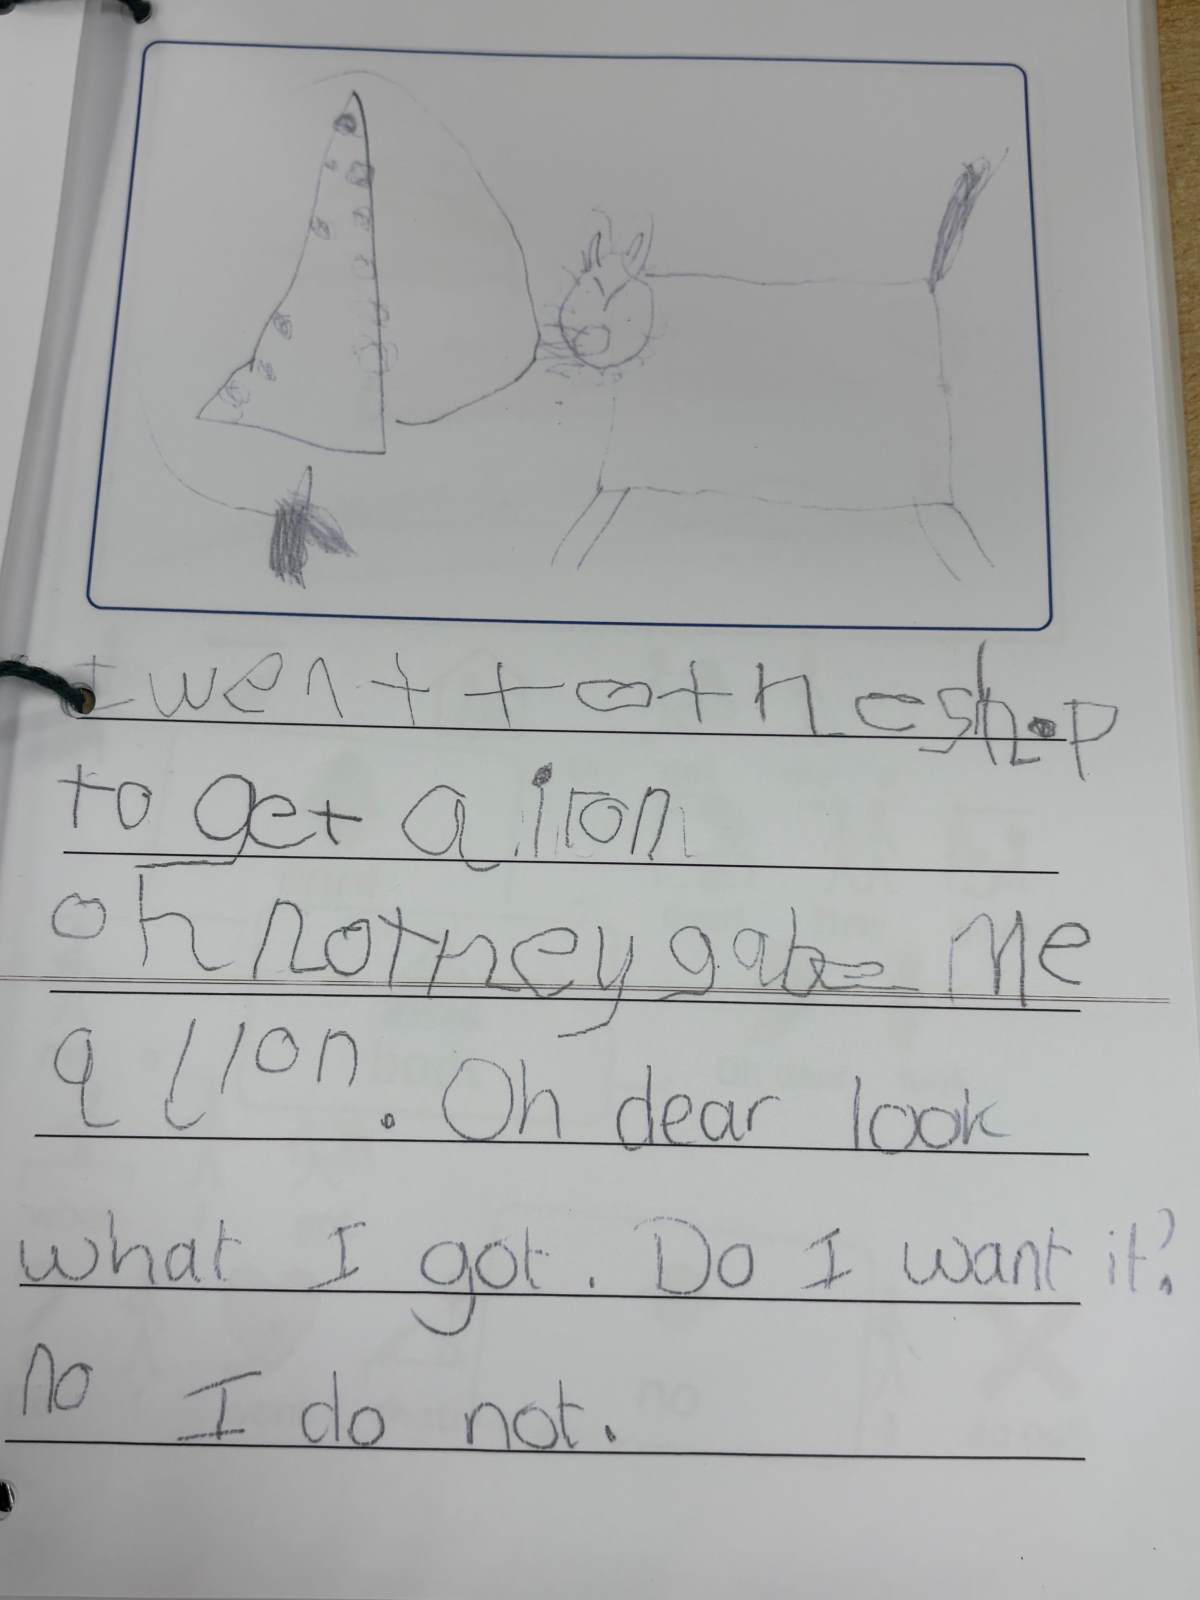 I went to the shop
to get a iron
oh no they gave me
a lion. Oh dear look
what I got. Do I want it?
no I do not.